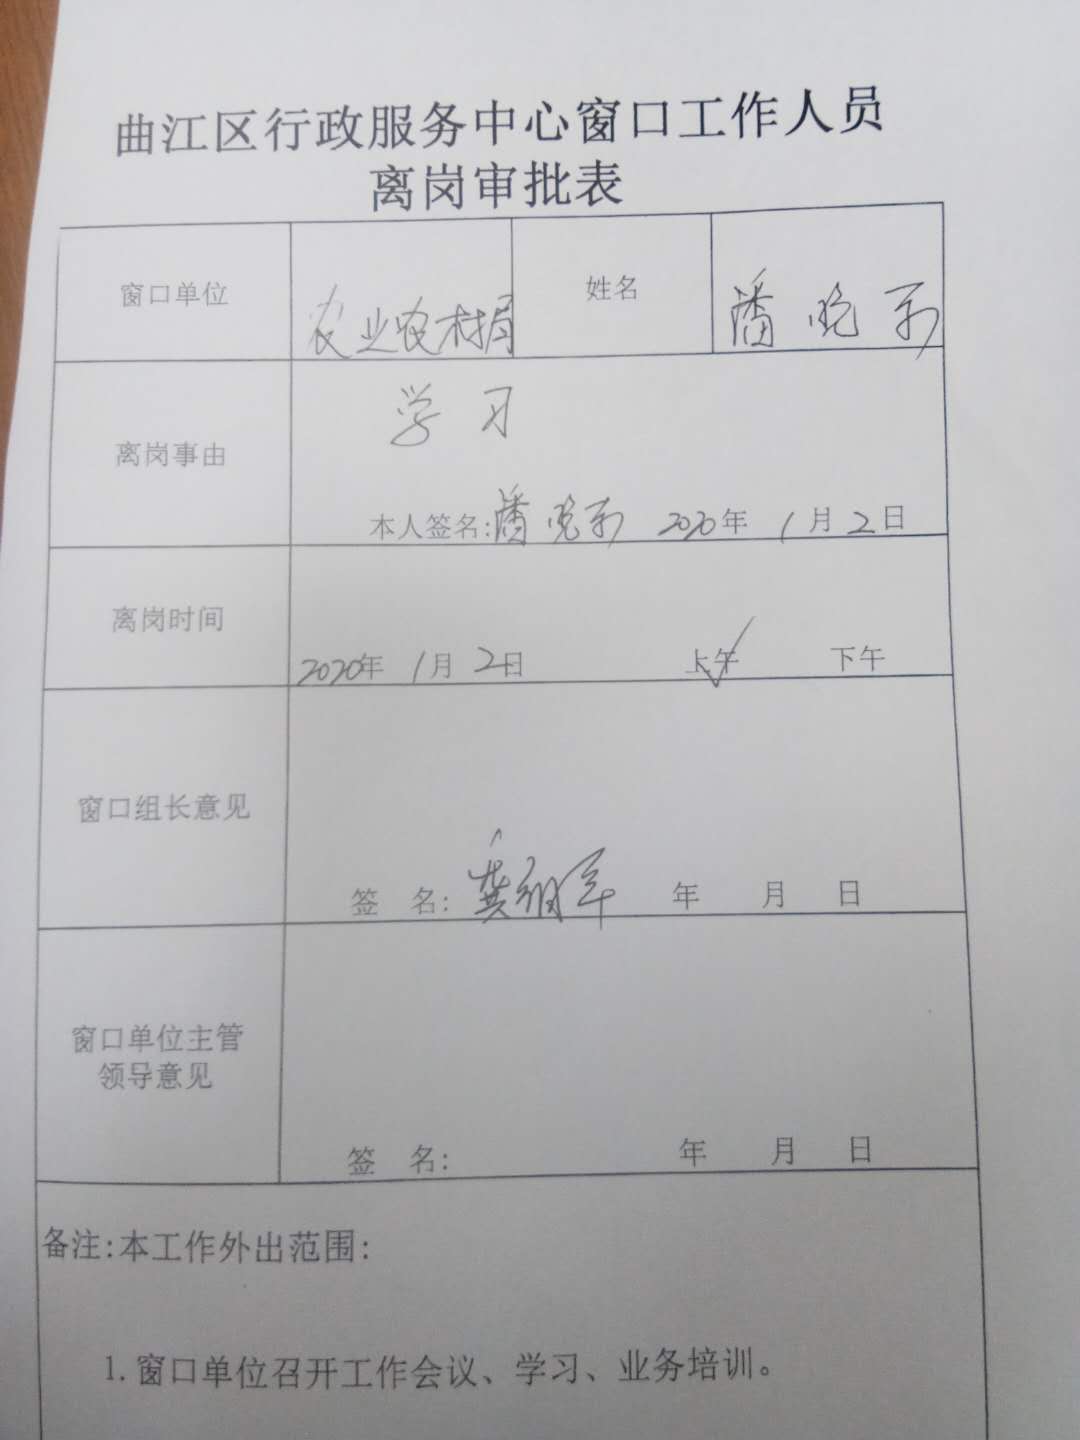 曲江区行政服务中心窗口工作人员
离岗审批表
窗口单位 农业农村局 姓名 潘晓
离岗事由 学习
本人签名:潘晓 2020年 1月2日
离岗时间 2020年 1月2日 上午 下午
窗口组长意见
签 名: 龚 军 年 月 日
窗口单位主管
领导意见
签 名: 年 月 日
备注:本工作外出范围:
1.窗口单位召开工作会议、学习、业务培训。